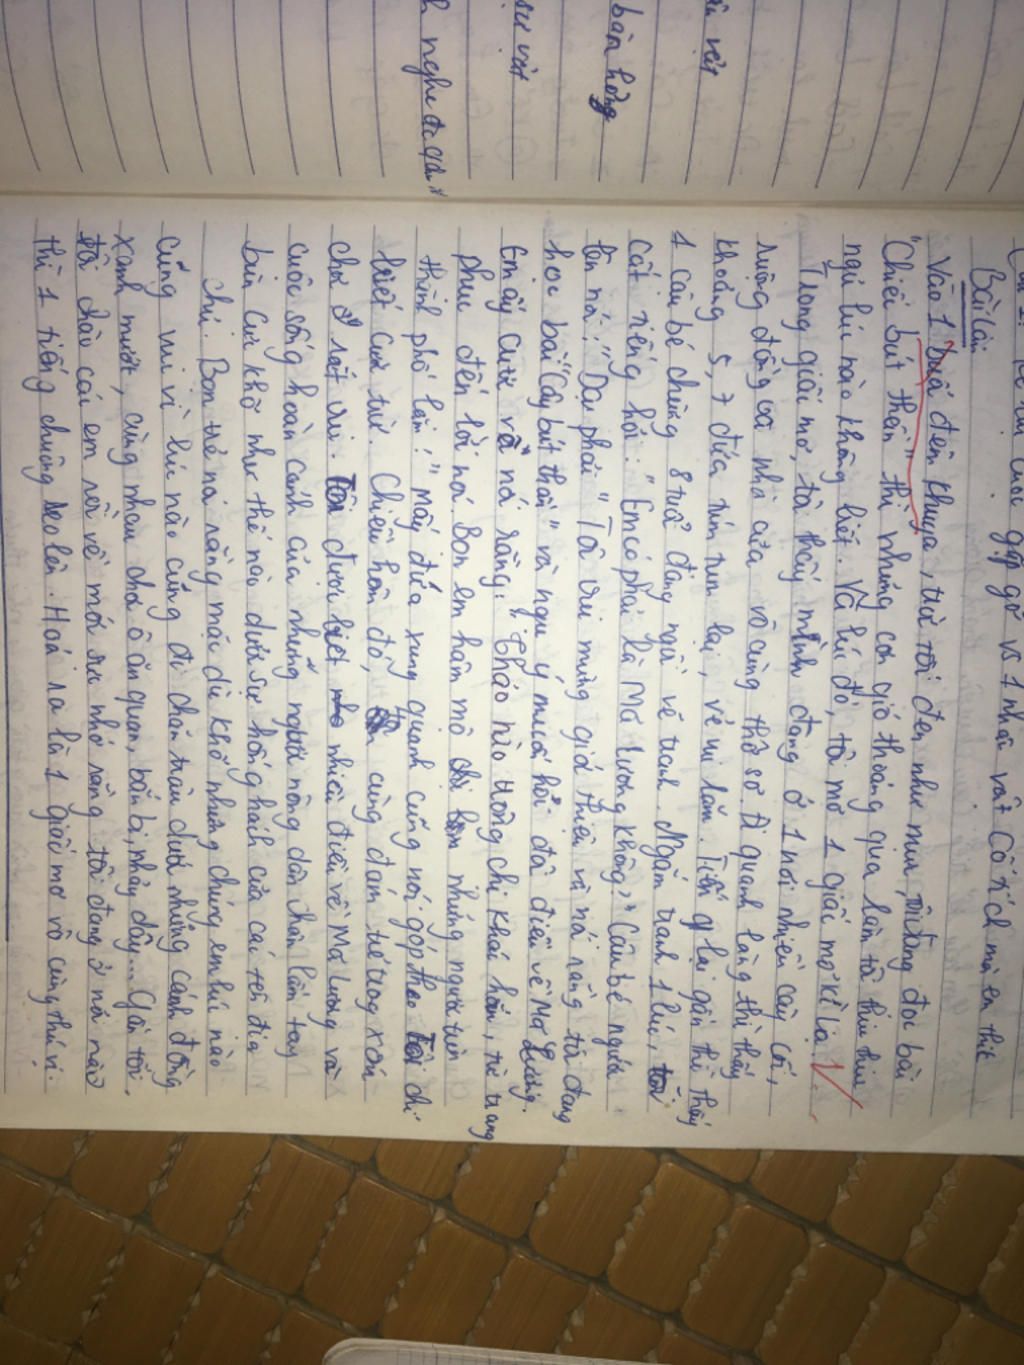 ần vật
bàn hồng
sự vật
h nghe đi qua
gặp gỡ vs 1 nhân vật cổ tích mà em thíc
Bài làm
Vào 1 buổi đêm khuya, trời tối đen như mực, tôi đang đọc bài
"Chiếc bút thần" thì những cơn gió thoáng qua làm tôi thiu thiu
ngủ lúc nào không biết. Và lúc đó, tôi mơ 1 giấc mơ kì lạ.
Trong giấc mơ, tôi thấy mình đang ở 1 nơi nhiều cây cối,
ruộng đồng và nhà cửa vô cùng thô sơ. Đi quanh làng thì thấy
khoảng 5, 7 đứa túm tụm lại, vẻ vui lắm. Tiến gần thì thấy
1 cậu bé chừng 8 tuổi đang ngồi vẽ tranh. Ngắm tranh 1 lúc, tôi
cất tiếng hỏi: "Em có phải là Mã Lương không?" Cậu bé ngước
lên nói: "Dạ phải" Tôi vui mừng giới thiệu và nói rằng tôi đang
học bài "Cây bút thần" và ngụ ý muốn hỏi đôi điều về Mã Lương.
Em ấy cười và nói rằng: "Thảo nào trông chị khác hẳn, từ trang
phục đến lời nói. Bọn em hâm mộ những người trên
thành phố lắm!" Mấy đứa xung quanh cũng nói góp theo chị
cười tươi. Chiều hôm đó, tôi cùng đám trẻ trong xóm
chơi rất vui. Tôi được biết nhiều điều về Mã Lương và
cuộc sống hoàn cảnh của những người nông dân chân lấm tay
bùn cực khổ như thế nào dưới sự hống hách của cai tên địa
chủ. Bọn trẻ nói rằng mặc dù khổ nhưng chúng em lúc nào
cũng vui vì lúc nào cũng đi chăn trâu dưới những cánh đồng
xanh mướt, cùng nhau chơi ô ăn quan, bắn bi, nhảy dây... Gần tối,
tôi chào các em rồi về mới sực nhớ rằng tôi đang ở nơi nào
thì 1 tiếng chuông reo lên. Hoá ra là 1 giấc mơ vô cùng thú vị.